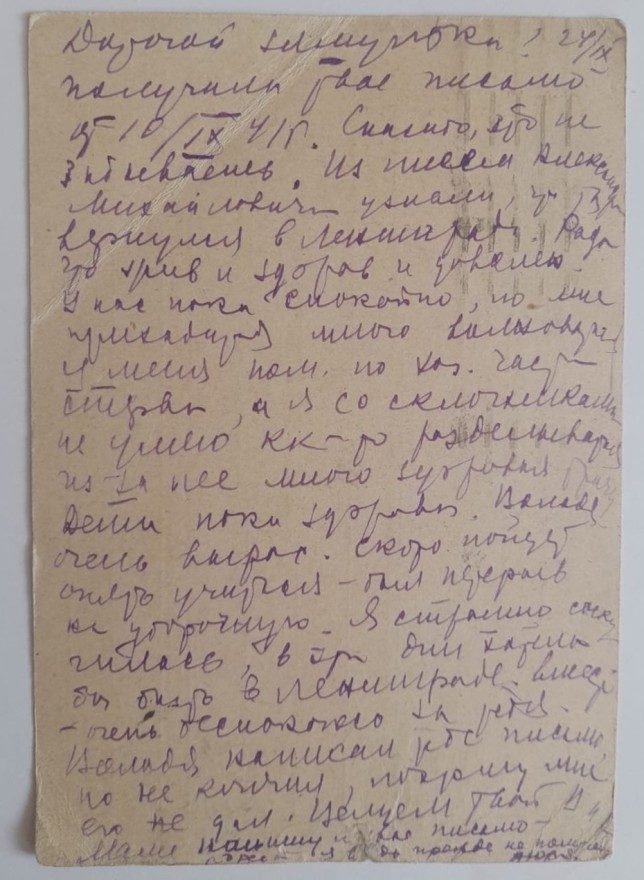 Дорогой 24/IX
получили твое письмо
от 10/IX 41 г. Спасибо, что не
забываешь. Из писем Александра
Михайловича узнали, что ты
вернулся в Ленинград. Рада
что жив и здоров и доволен.
У нас пока спокойно, но мне
приходится много волноваться
у меня пом. по хоз. части
стерва, а я со склочниками
не умею как-то разделываться
из за нее много здоровья
Дети пока здоровы. Володя
очень вырос. Скоро пойдет
опять учиться - был перерыв
на уборочную. Я страшно соску
чилась, в эти дни хотела
бы быть в Ленинграде. вместе
- очень беспокоюсь за тебя.
Володя написал тебе письмо,
но не кончил, поэтому мне
его не дал. Целуем Твои
Маме напишу и письмо